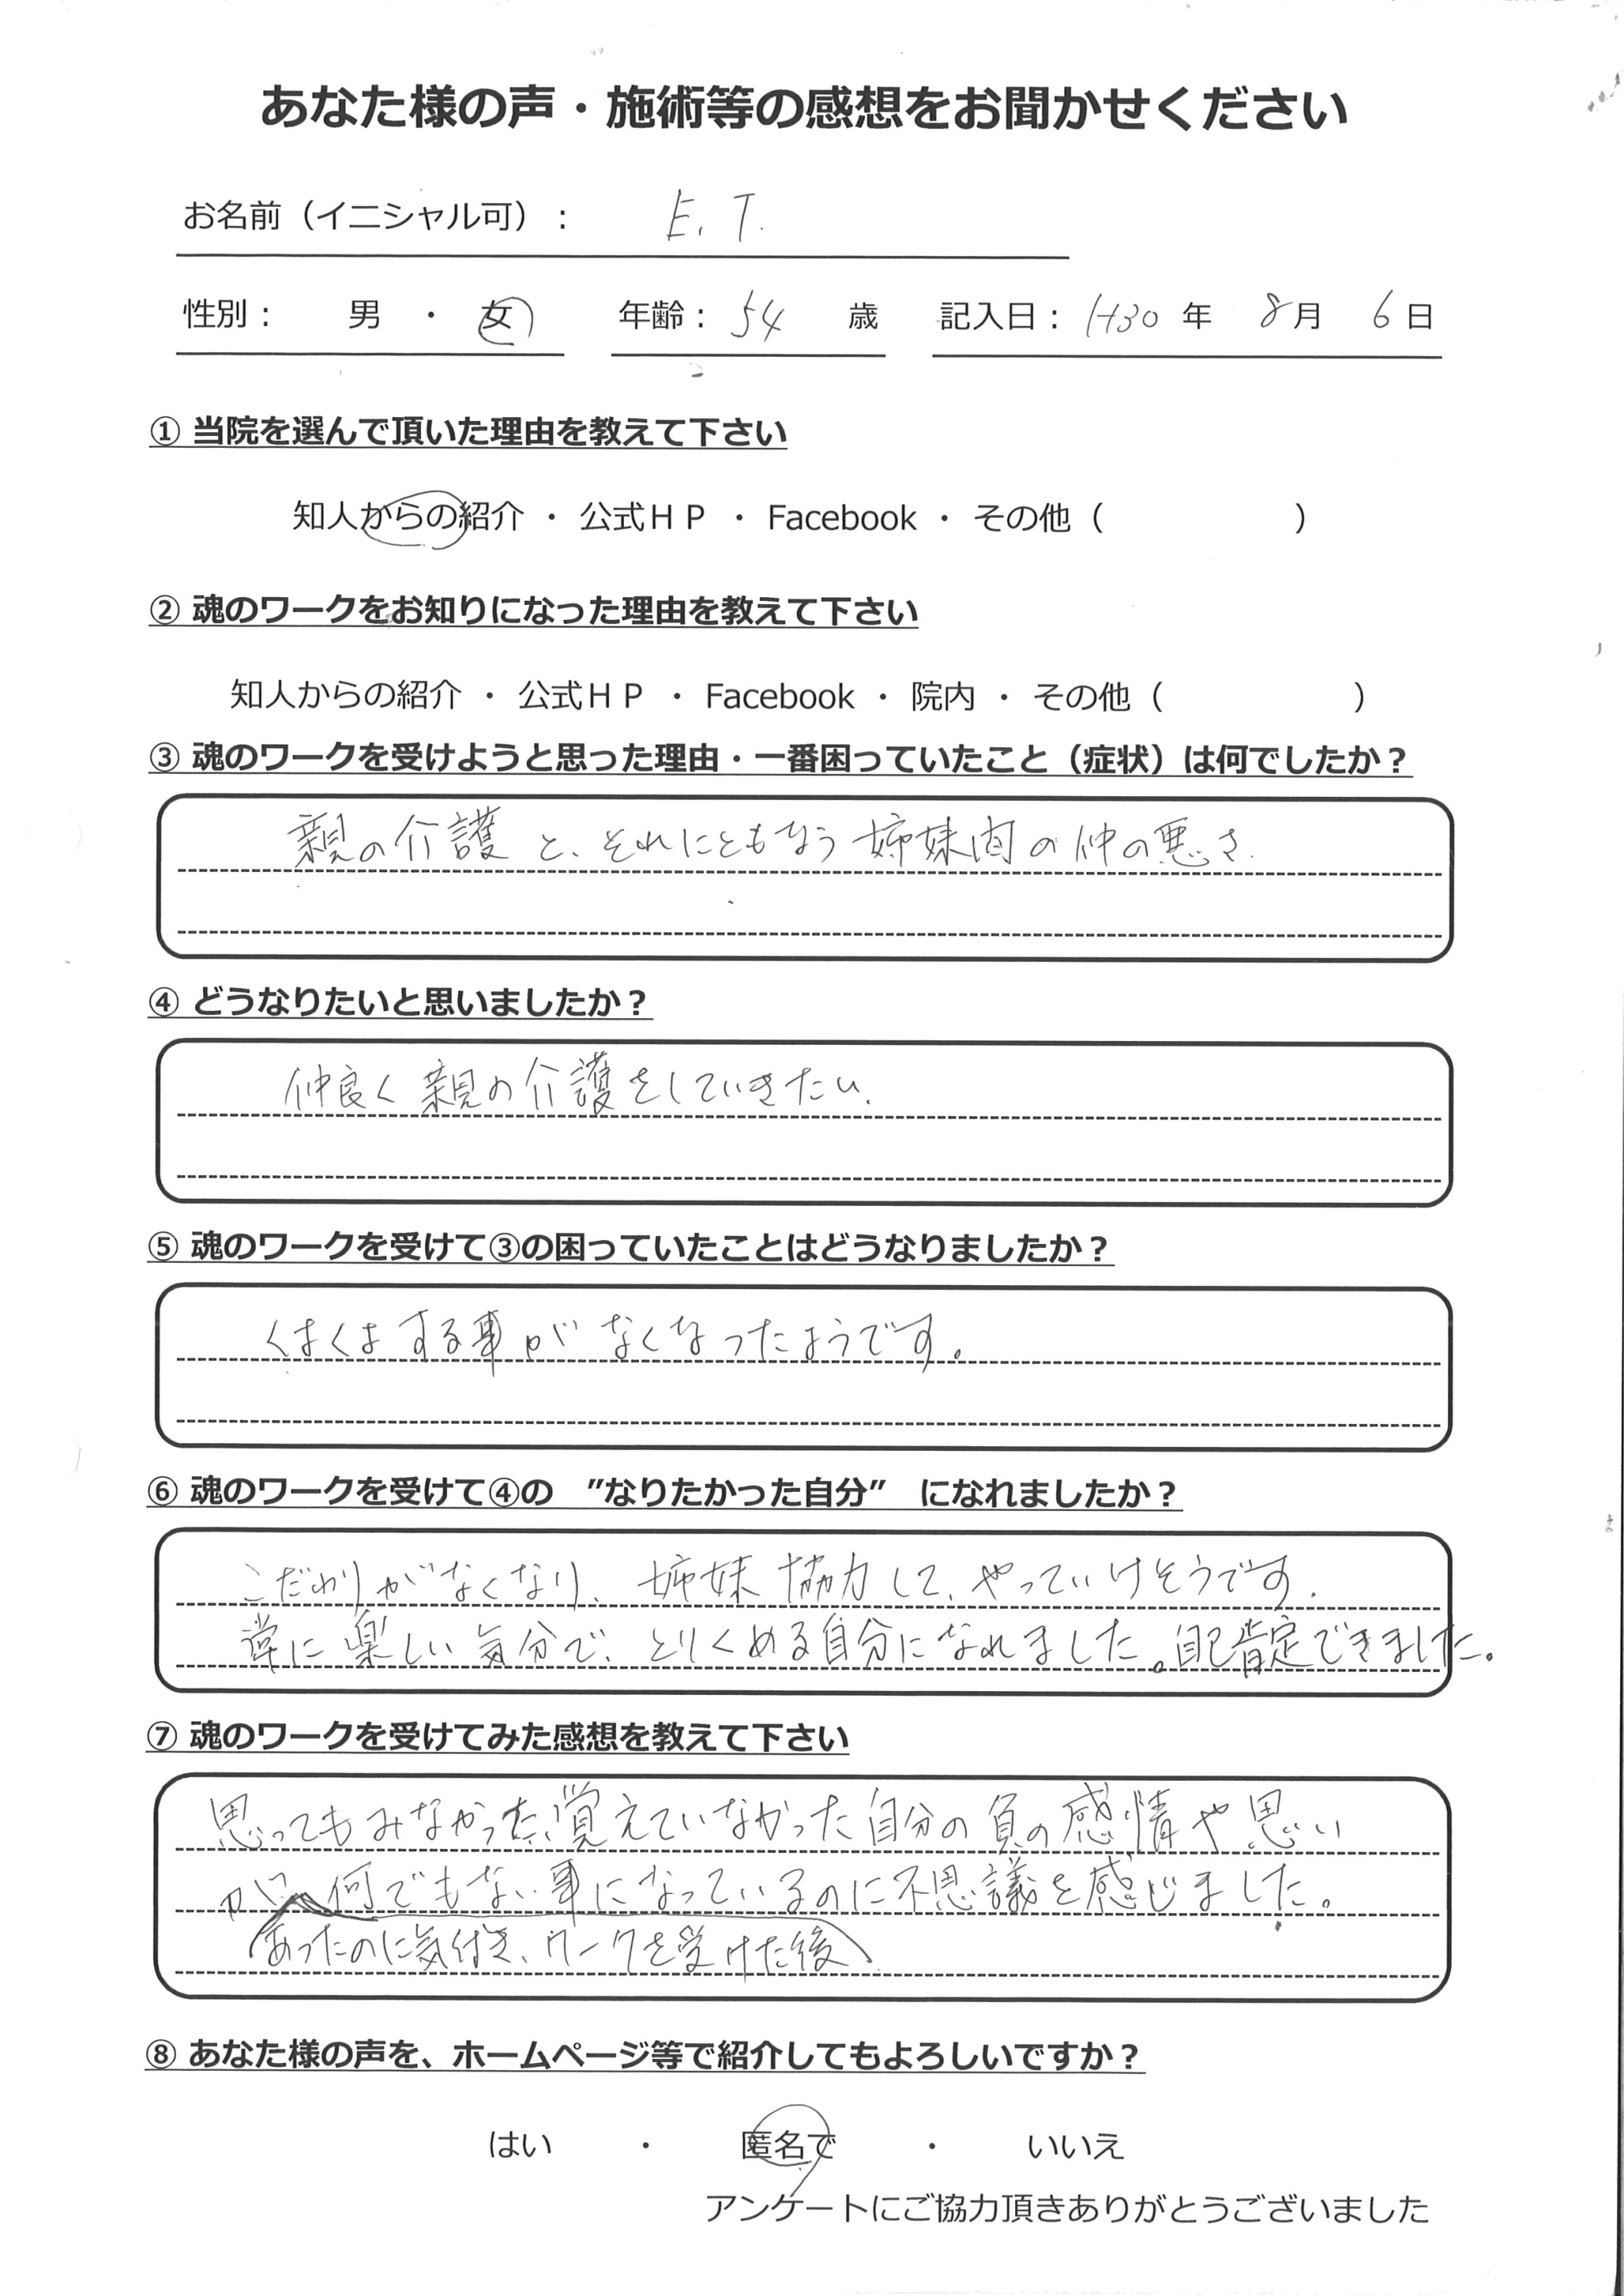 あなた様の声・施術等の感想をお聞かせください
お名前（イニシャル可）： E. T.
性別： 男 ・ 女 年齢： 54 歳 記入日： H30 年 8月 6日
① 当院を選んで頂いた理由を教えて下さい
知人からの紹介 ・ 公式ＨＰ ・ Facebook ・ その他（ ）
② 魂のワークをお知りになった理由を教えて下さい
知人からの紹介 ・ 公式ＨＰ ・ Facebook ・ 院内 ・ その他（ ）
③ 魂のワークを受けようと思った理由・一番困っていたこと（症状）は何でしたか？
親の介護と、それにともなう姉妹間の仲の悪さ.
④ どうなりたいと思いましたか？
仲良く親の介護をしていきたい.
⑤ 魂のワークを受けて③の困っていたことはどうなりましたか？
くよくよする事がなくなったようです。
⑥ 魂のワークを受けて④の ”なりたかった自分” になれましたか？
こだわりがなくなり、姉妹協力して、やっていけそうです.
常に楽しい気分で、とりくめる自分になれました。自己肯定できました。
⑦ 魂のワークを受けてみた感想を教えて下さい
思ってもみなかった、覚えていなかった自分の負の感情や思い
が 何でもない事になっているのに不思議を感じました。
あったのに気付き、ワークを受けた後
⑧ あなた様の声を、ホームページ等で紹介してもよろしいですか？
はい ・ 匿名で ・ いいえ
アンケートにご協力頂きありがとうございました